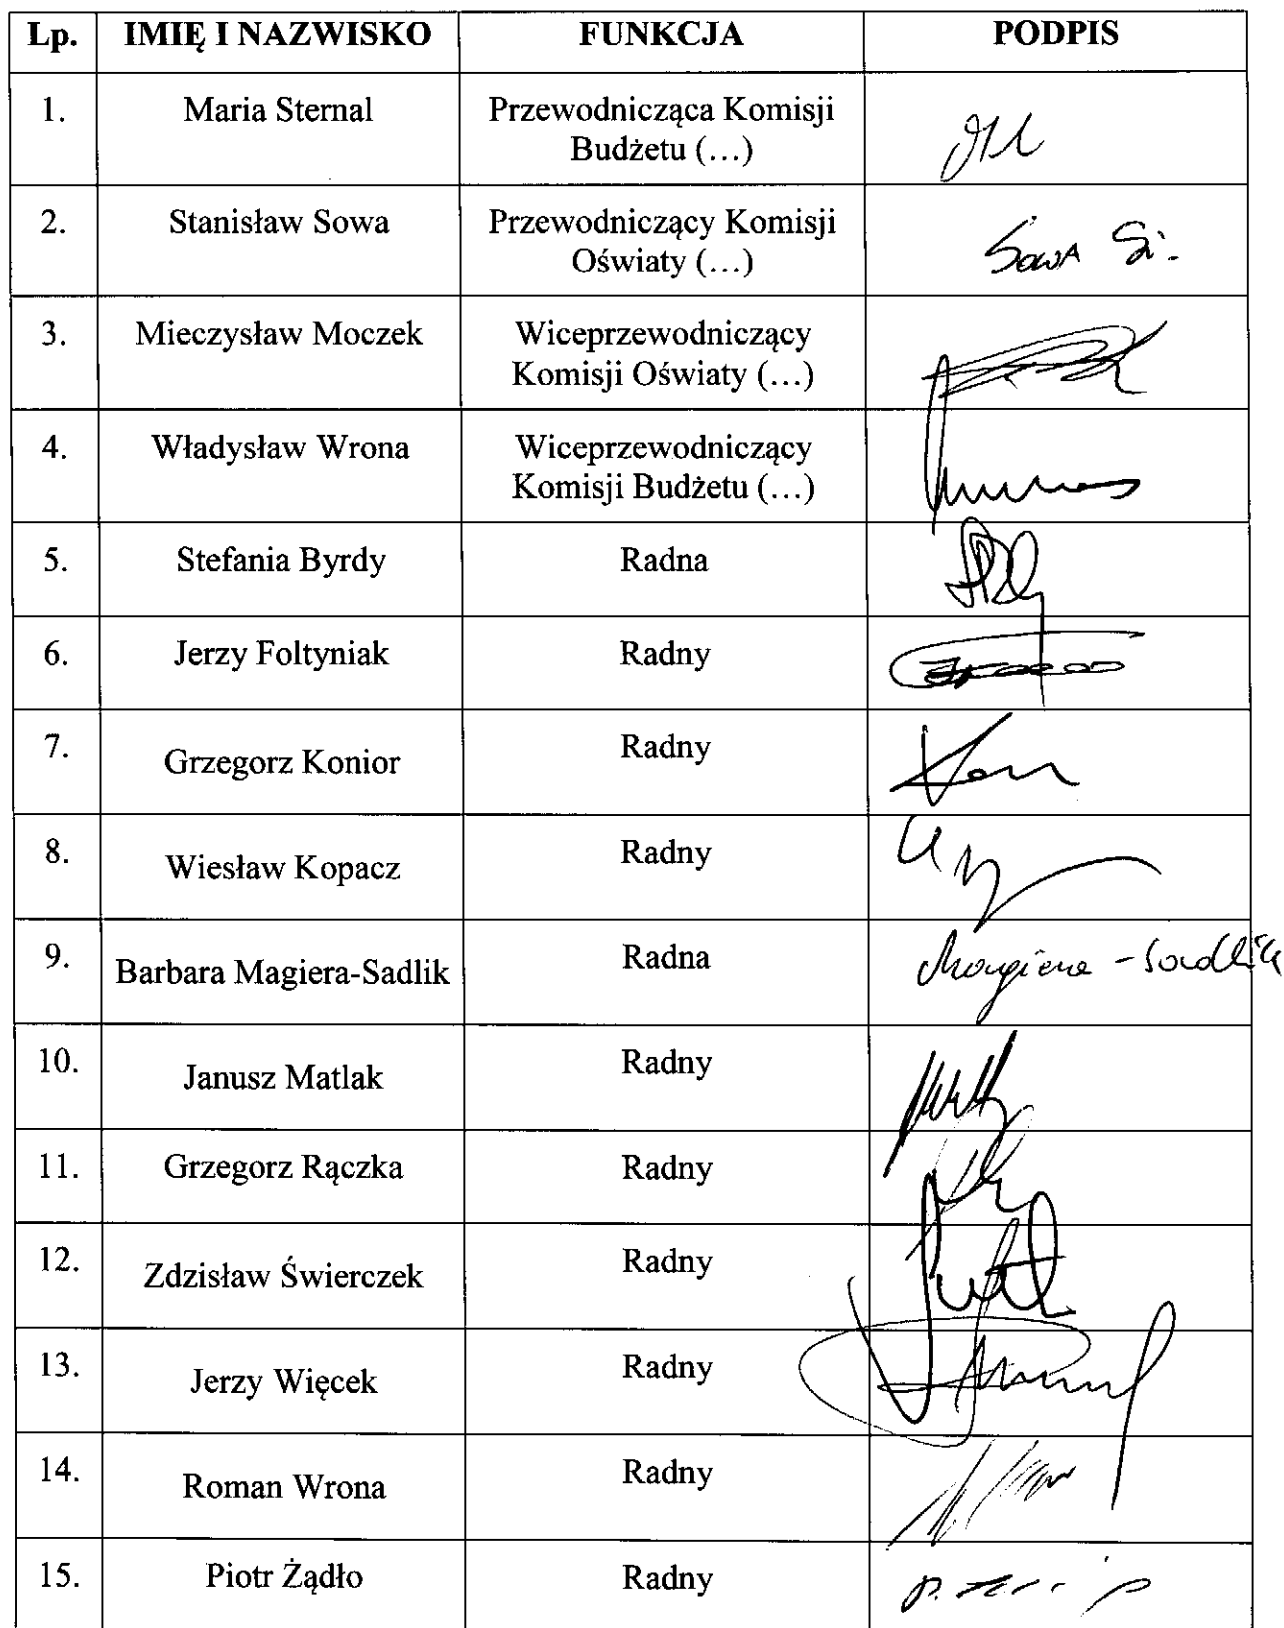 Lp. IMIĘ I NAZWISKO FUNKCJA PODPIS
1. Maria Sternal Przewodnicząca Komisji
Budżetu (…)
2. Stanisław Sowa Przewodniczący Komisji
Oświaty (…) Sowa St.
3. Mieczysław Moczek Wiceprzewodniczący
Komisji Oświaty (…)
4. Władysław Wrona Wiceprzewodniczący
Komisji Budżetu (…)
5. Stefania Byrdy Radna
6. Jerzy Foltyniak Radny
7. Grzegorz Konior Radny
8. Wiesław Kopacz Radny
9. Barbara Magiera-Sadlik Radna Magiera-Sadlik
10. Janusz Matlak Radny
11. Grzegorz Rączka Radny
12. Zdzisław Świerczek Radny
13. Jerzy Więcek Radny
14. Roman Wrona Radny
15. Piotr Żądło Radny